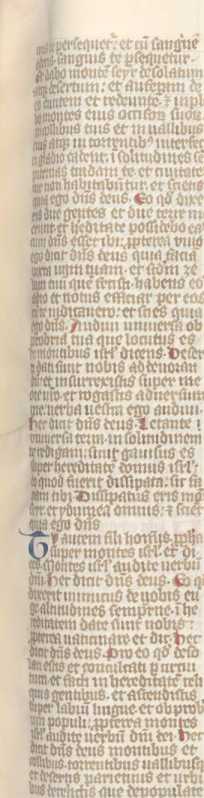 te persequetur: et cū sanguinē
sanguis te psequetur.
dabo montē seyr desolatum
desertum: et auferam de
euntem et redeunte. ⁊ inplebo
montes eius occisoꝝ suoꝝ.
collibus tuis et in uallibus
tuis atqꝫ in torrentibꝰ interfecti
gladio cadent. i solitudines sē
piternas tradam te et ciuitates
tue non habitabūtur. et scietis
quia ego dn̄s deus. Eo qd̄ dixe
ris due gentes et due terre me
erunt et hereditate possidebo eas
cum dn̄s esset ibi: ꝓpterea uiuo
ego dicit dn̄s deus quia faciā
iuxta iram tuam. et scdm ze
lum tuū que fecisti habens eos
odio et notus efficiar per eos
cū te iudicauero: et scies quia
ego dn̄s. Audiui uniuersa ob
probria tua que locutus es
de montibus isrl̄ dicens. Deser
ti dati sunt nobis ad deuoran
dū: et insurrexistis super me
ore uro et rogastis aduersum
me uerba uestra ego audiui.
hec dicit dn̄s deus. Letante
uniuersa terra in solitudinem
te redigam: sicut gauisus es
super hereditate domus isrl̄:
eo quod fuerit dissipata. sic fa
ciam tibi. Dissipatus eris mōs
seyr. et ydumea omnis: ⁊ sciet
quia ego dn̄s
Tu autem fili hoīs ꝓpha
super montes isrl̄. et di
ces. Montes isrl̄ audite uerbū
dn̄i. hec dicit dn̄s deus. Eo qd̄
dixerit inimicus de uobis eu
ge altitudines sempiterne i he
reditatem date sunt nobis:
ꝓpterea uaticinare et dic. hec
dicit dn̄s deus. Pro eo qd̄ deso
lati estis et conculcati ꝑ circui
tum et facti in hereditatē reli
quis gentibus. et ascendistis
super labiū lingue et obprobriū
populi: ꝓpterea montes
isrl̄ audite uerbū dn̄i dei. hec
dicit dn̄s deus montibus et
collibus. torrentibus uallibusqꝫ
et desertis parietinis et urbi
bus derelictis que depopulate